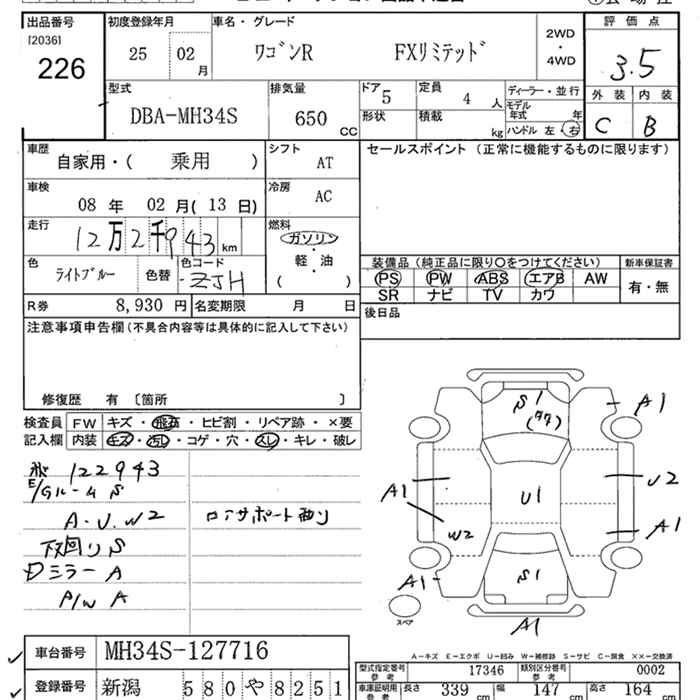 出品番号 初度登録年月 車名・グレード 評価点
[2036]
226
25 02月 ワゴンR FXリミテッド 2WD・4WD 3.5
型式 排気量 ドア 5 定員 4人 ディーラー・並行 外装 内装
DBA-MH34S 650cc 形状 積載 kg モデル年式 年 C B
ハンドル 左・右
車歴 シフト セールスポイント (正常に機能するものに限ります)
自家用・( 乗用 ) AT
車検 冷房
08年 02月(13日) AC
走行 燃料
12万2千943km ガソリン・軽・油
( )
色 色替 色コード 装備品(純正品に限り○をつけてください) 新車保証書
ライトブルー ZJH PS PW ABS エアB AW 有・無
SR ナビ TV カワ
R券 8,930円 名変期限 月 日 後日品
注意事項申告欄(不具合内容等は具体的に記入して下さい)
修復歴 有 〔箇所 〕
検査員記入欄 FW キズ・飛石・ヒビ割・リペア跡・×要
内装 キズ・汚レ・コゲ・穴・スレ・キレ・破レ
飛 122943
E/グルーム S
A・U・W2
下回り S
Dミラー A
P/W A
S1
A1
U1
U2
A1
A1
W2
S1
A1
A1
スペア
A-キズ E-エクボ U-凹み W-補修跡 S-サビ C-腐食 ××-交換済
車台番号 MH34S-127716
型式指定番号 参考 17346 類別区分番号 参考 0002
登録番号 新潟 580や8251
車庫証明用 参考 長さ 339cm 幅 147cm 高さ 164cm